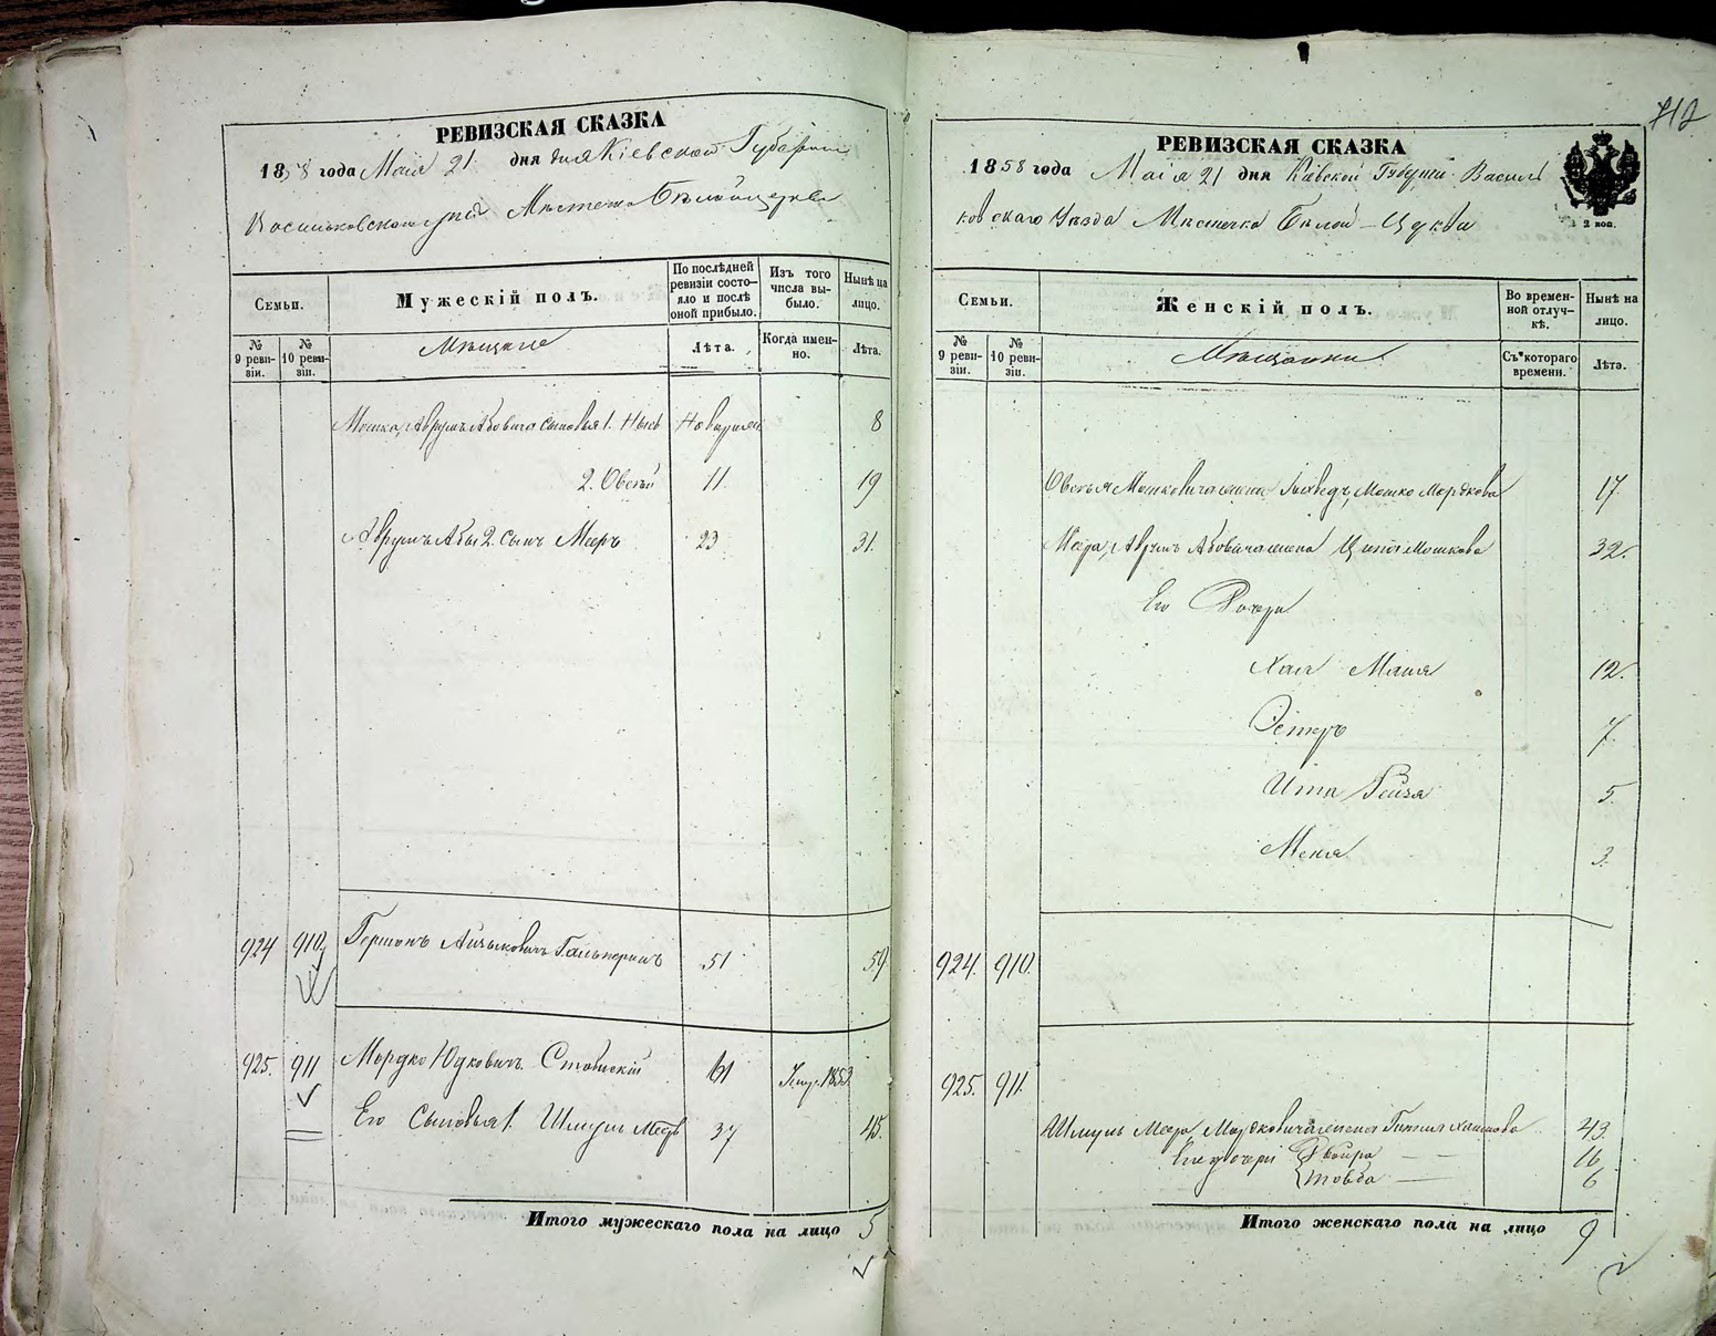 712
РЕВИЗСКАЯ СКАЗКА
1858 года Маія 21 дня Кіевской Губерніи
Васильковскаго Мѣстечка
Семьи.
Мужескій полъ.
По послѣдней ревизіи состояло и послѣ оной прибыло.
Изъ того числа выбыло.
Нынѣ на лицо.
№ 9 ревизіи.
№ 10 ревизіи.
Мѣщане
Лѣта.
Когда именно.
Лѣта.
Мошка, Аврумъ Абовича сыновья 1. 8
2. Овсѣй 11 19
Аврумъ Абы 2. сынъ Мееръ 23 31.
924 910 Гершонъ Айзыковичъ Гальперинъ 51 59
925. 911 Мордко Юдковичъ 61 1853
Его Сыновья 1. Шмуль Мееръ 37 45.
Итого мужескаго пола на лицо 5
РЕВИЗСКАЯ СКАЗКА
1858 года Маія 21 дня Кіевской Губерніи Василь
ковскаго Уѣзда Мѣстечка Бѣлой-Церкви
2 коп.
Семьи.
Женскій полъ.
Во временной отлучкѣ.
Нынѣ на лицо.
№ 9 ревизіи.
№ 10 ревизіи.
Мѣщанки
Съ котораго времени.
Лѣта.
Овсѣя Мошковича жена Мошко Мордкова 17.
Меера, Аврумъ Абовича жена Ципа Мошкова 32.
Его Дочери
Хая Маня 12.
Эстеръ 7.
Ита Рейза 5.
Меня 3.
924. 910.
925. 911.
Шмуль Меера Мордковича жена Хаимова 43.
Его дочери Двойра 16
Товба 6
Итого женскаго пола на лицо 9